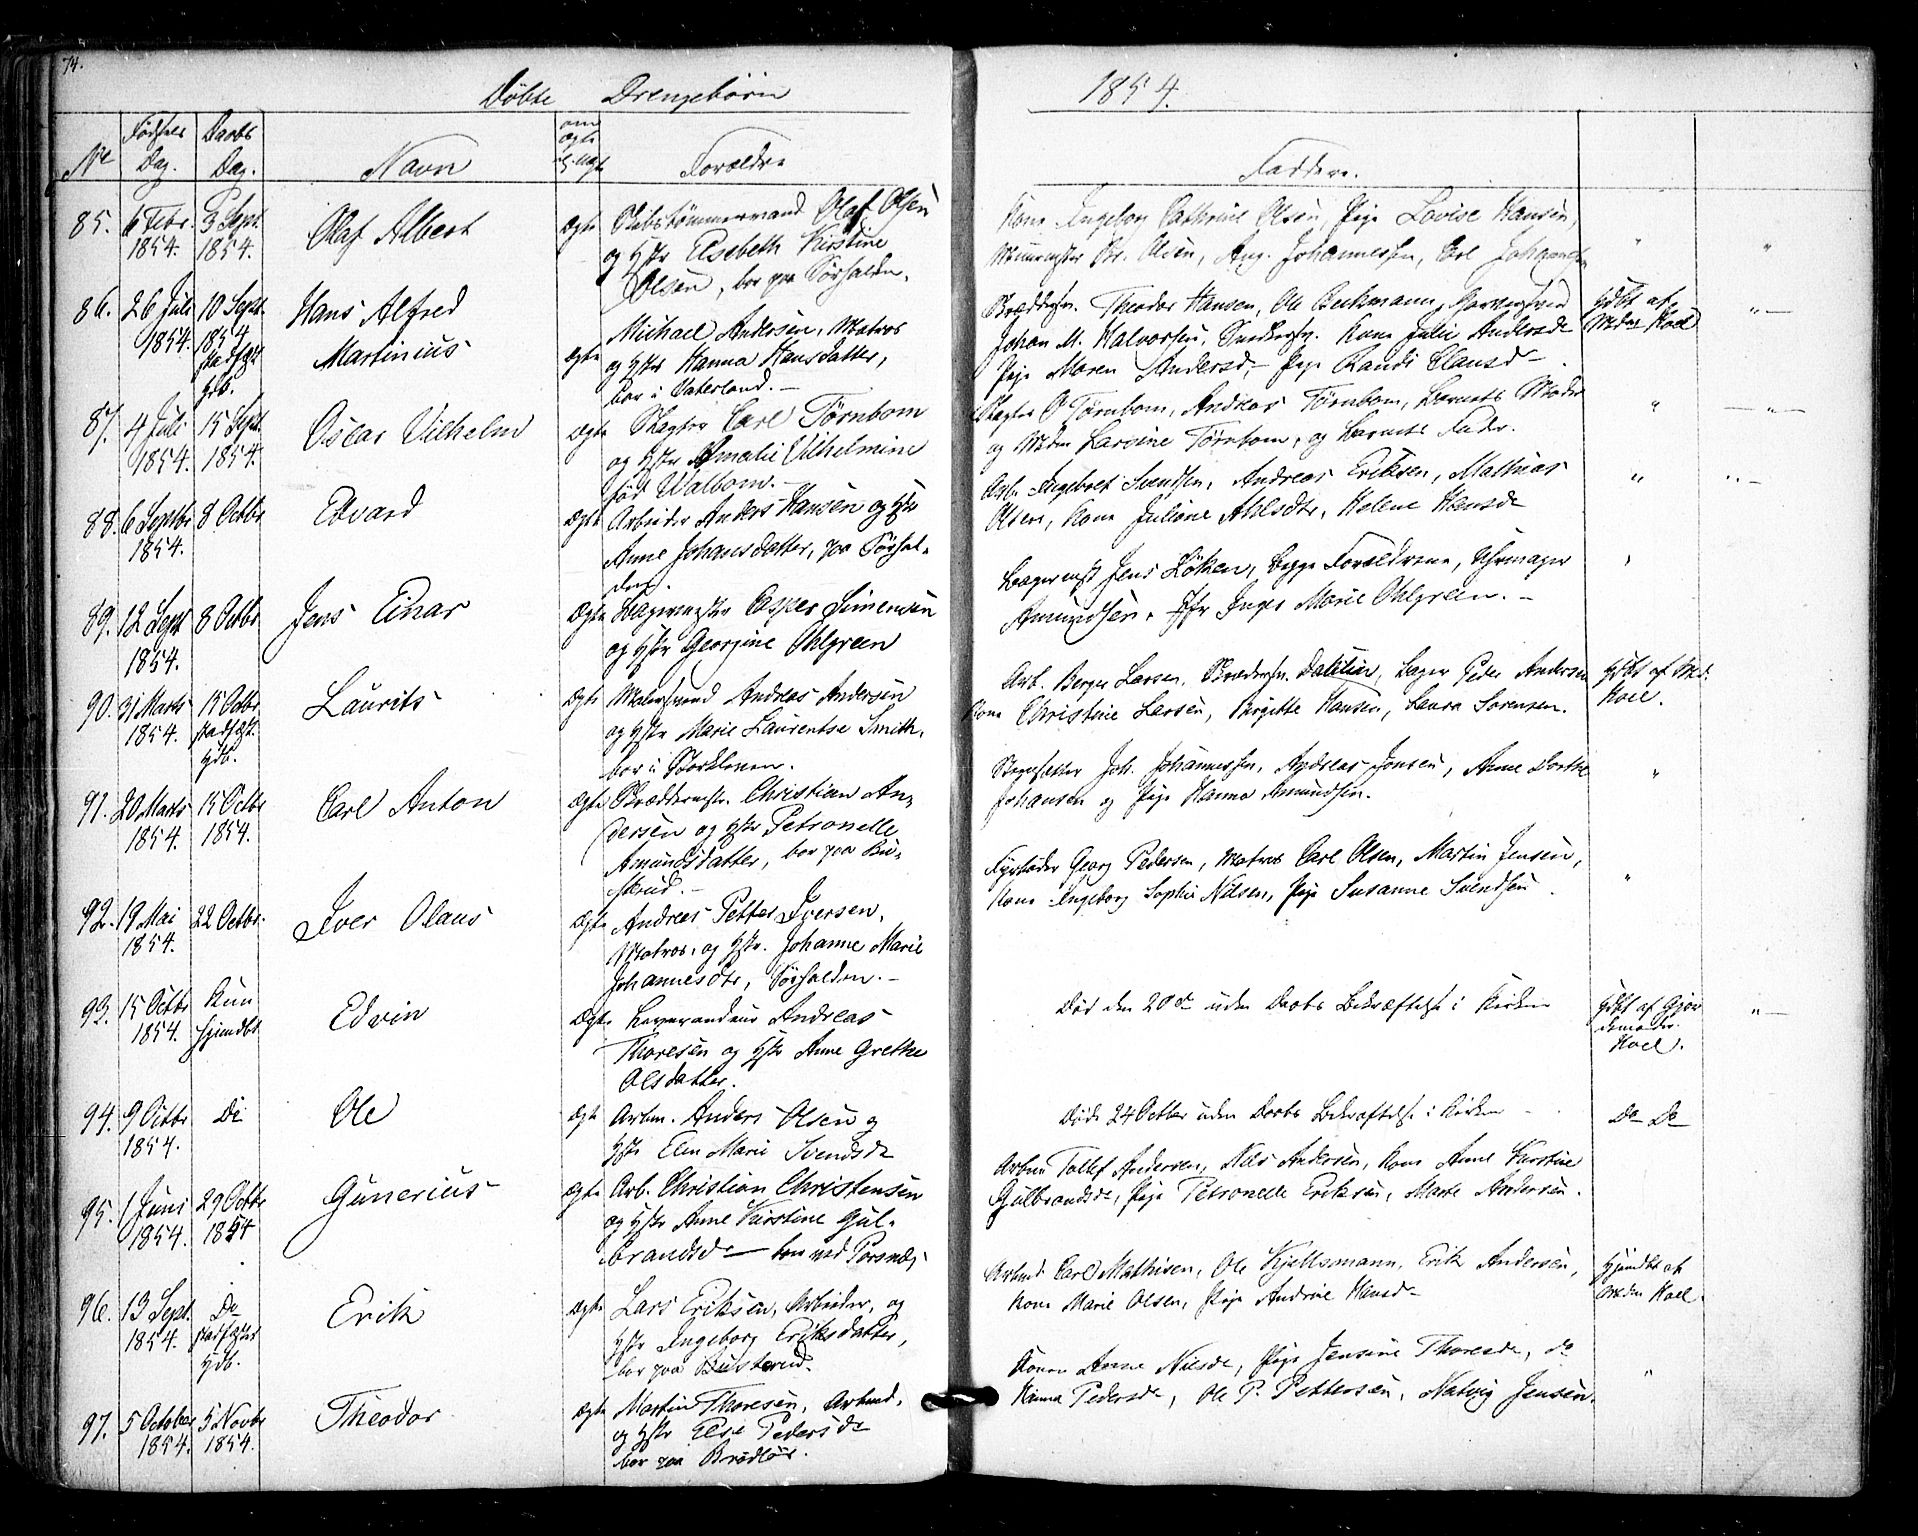 74.
Døbte Drengebørn 1854.
No Fødsels Dag. Daabs Dag. Navn om ægte Forældre Faddere.
85. 6 Febr. 1854. 3 Sept. 1854. Olaf Albert Ægte Skibstømmermand Olaf Olsen
og Hstr Elsebeth Kirstine
Olsen, bor paa Sørhalden.
Kone Ingeborg Cathrine Olsen, Pige Lovise Hansen,
Olsen, Aug. Johannessen, Carl Johannesen
86. 26 Juli 1854. 10 Sept. 1854 stadfæst. Hdb. Hans Alfred
Martinius Ægte Michael Andersen, Matros
og Hstr Hanna Hansdatter,
bor i Vaterland.
Theodor Hansen, Ole Beckmann, Garversvend
Johan M. Halvorsen, Kone Julie Andersd
Pige Maren Andersd, Pige Randi Clausd
Hdbt af Mdm Hoel
87. 4 Juli 1854. 15 Sept. 1854. Oscar Vilhelm Ægte Slagter Carl Törnbom
og Hstr Amalie Vilhelmine
född Walbom.
Slagter O Törnbom, Andreas Törnbom, Barnets Moder
og Mdm Larsine Törnbom, og Barnets Fader.
88. 6 Septbr 1854. 8 Octbr Edvard Ægte Arbeider Anders Hansen og Hstr
Anne Johansdatter, paa Sørhal-
den.
Arb. Ingebret Svendsen, Andreas Eriksen, Mathias
Olsen, Kone Juliane Ahlsdtr, Helene Hansd
89. 12 Sept 1854. 8 Octbr Jens Einar Ægte Bagermester Casper Simensen
og Hstr Georgine Ohlgreen
Bagermst Jens Löken, begge Forældrene, Uhrmager
Amundsen, Jfr Inger Marie Ohlgreen.
90. 31 Marts 1854. 15 Octbr. stadfæst. Hdb. Laurits Ægte Malersvend Andreas Andersen
og Hstr Marie Laurentse Smith,
bor i Storkleven.
Arb. Berger Larsen, Bager Peder Andersen
Kone Christine Larsen, Birgitte Hansen, Laura Sørensen.
Hdbt af Md. Hoel.
91. 20 Marts 1854. 15 Octbr 1854. Carl Anton Ægte Skræddermstr. Christian An-
dersen og Hstr Petronelle
Amundsdatter, bor paa Bu-
skrud.
Joh. Johannessen, Andreas Jensen, Anne Dorthe
Johansen og Pige Hanna Amundsen.
92. 19 Mai 1854. 22 Octbr. Iver Olaus Ægte Andreas Petter Iversen,
Matros, og Hstr. Johanne Marie
Johannesdtr, Sørhalden.
Fyrbøder Georg Pedersen, Matros Carl Olsen, Martin Jensen,
Kone Ingeborg Sophie Nilsen, Pige Susanne Svendsen.
93. 15 Octbr 1854. Kun hjemdbt. Edvin Ægte Leverandeur Andreas
Thoresen og Hstr Anne Grethe
Olsdatter.
Død den 20de uden Daabs Bekræftelse i Kirken
Hdbt af Gjor demoder Hoel.
94. 9 Octbr 1854. Do Ole Ægte Arbm. Anders Olsen og
Hstr Elen Marie Svendsd
Døde 24 Octbr uden Daabs Bekræftelse i Kirken
Do Do
95. 1 Juni 1854. 29 Octbr 1854 Gunerius Ægte Arb. Christian Christensen
og Hstr Anne Kirstine Gul-
brandsd bor ved Porsnæs
Arbm Tollef Andersen, Nils Andersen, Kone Anne Kirstine
Gulbrandsd, Pige Petronelle Eriksen, Marte Andersen.
96. 13 Sept. 1854. Do stadfæstet Hdb. Erik Ægte Lars Eriksen, Arbeider, og
Hstr Ingeborg Eriksdatter,
bor paa Busterud.
Arbmd Carl Mathisen, Ole Kjellsmann, Erik Andersen,
Kone Marie Olsen, Pige Andrine Hansd
Hjemdbt af Mdm Hoel.
97. 5 October 1854. 5 Novbr 1854. Theodor Ægte Martin Thoresen, Arbmd,
og Hstr Else Pedersd
bor paa Brødløs.
Konen Anne Nilsd, Pige Jensine Thoresd, do
Hanna Pedersd, Ole P. Pettersen, Natvig Jensen.